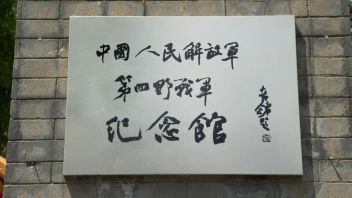 中國人民解放軍
第四野戰軍
纪念館